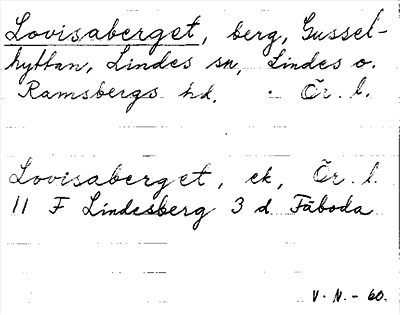 Lovisaberget, berg, Gussel-
hyttan, Lindes sn, Lindes o.
Ramsbergs hd. Ör. l.
Lovisaberget, ek, Ör. l.
11 F Lindesberg 3 d Fäboda
V. N. - 60.